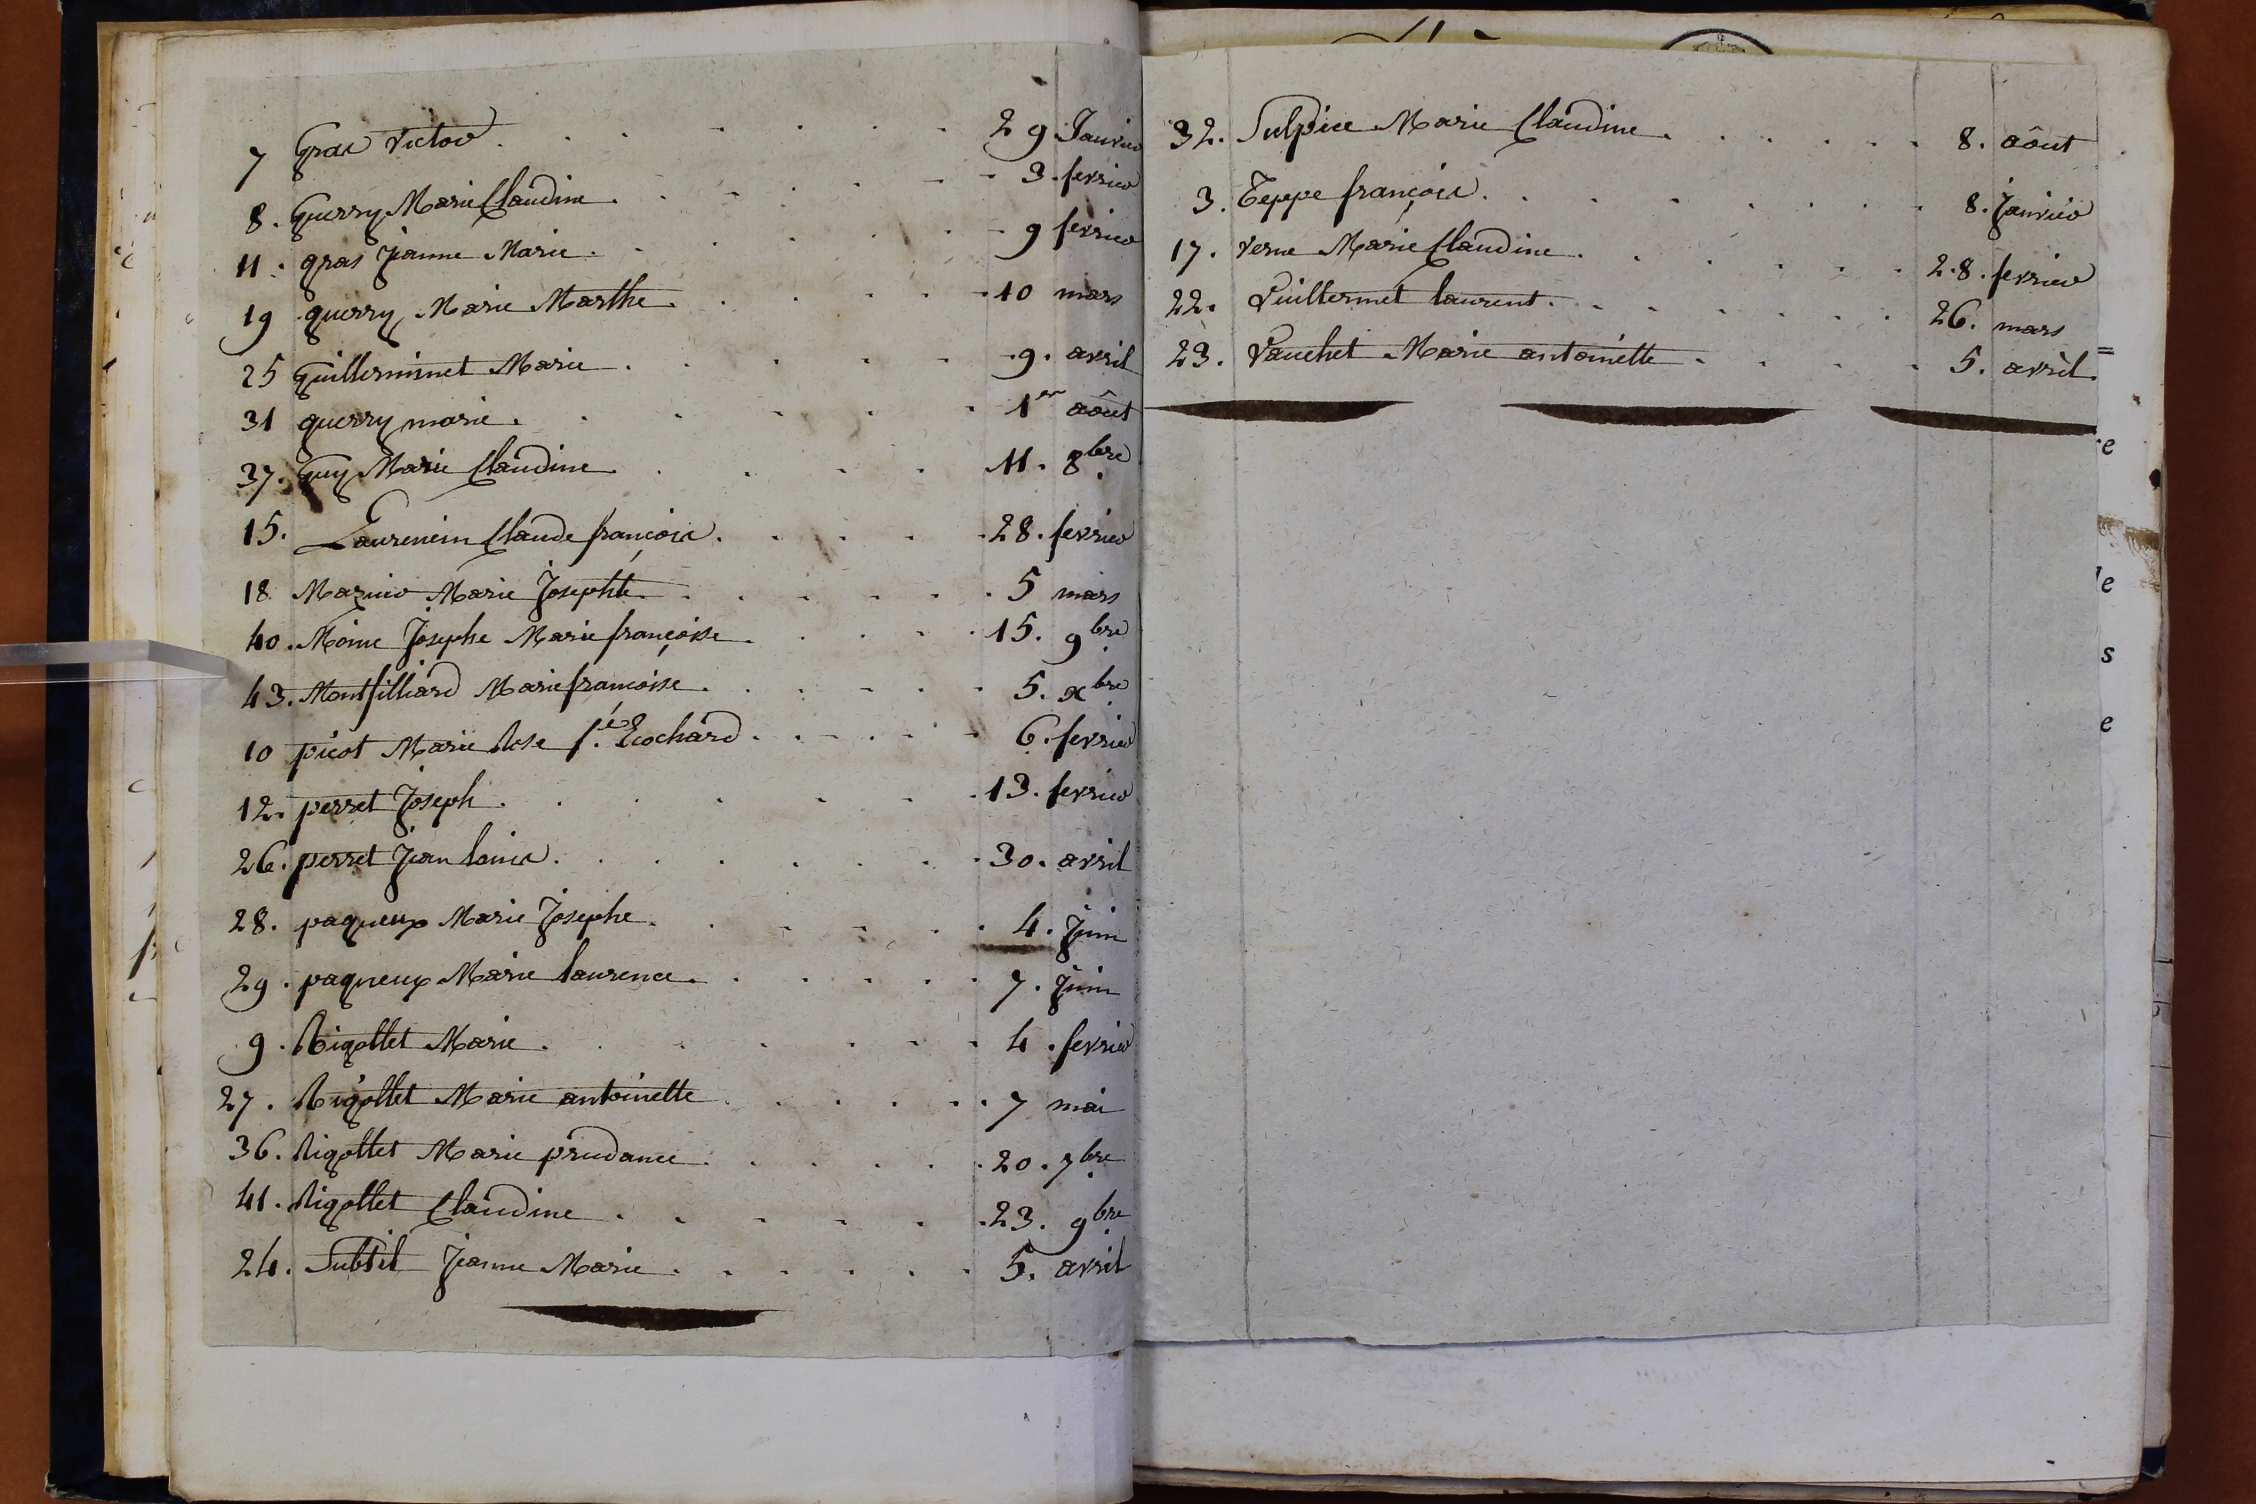 7 Gras Victor 29 Janvier
8. Guerry Marie Claudine 3. fevrier
11. gras Jeanne Marie 9 fevrier
19 guerry Marie Marthe 10 mars
25 Guilleminet Marie 9. avril
31 guerry marie 1er aôut
37. Guy Marie Claudine 11. 8bre
15. Laurencin Claude françois 28. fevrier
18 Marie Josephte 5 mars
40. Moine Josephe Marie françoise 15. 9bre
43. Montfilliard Marie françoise 5. xbre
10 picot Marie Rose fe Ecochard 6. fevrier
12. perret Joseph 13. fevrier
26. perret Jean louis 30. avril
28. paqueux Marie Josephe 4. Juin
29. paqueux Marie laurence 7. Juin
9. Rigollet Marie 4. fevrier
27. Rigollet Marie antoinette 7 mai
36. Rigollet Marie prudance 20. 7bre
41. Rigollet Claudine 23. 9bre
24. Subtil Jeanne Marie 5. avril
32. Sulpice Marie Claudine 8. aôut
3. Teppe françois 8. Janvier
17. Verne Marie Claudine 28. fevrier
22. Vuillermet laurent 26. mars
23. Vauchet Marie antoinette 5. avril
e
le
s
e